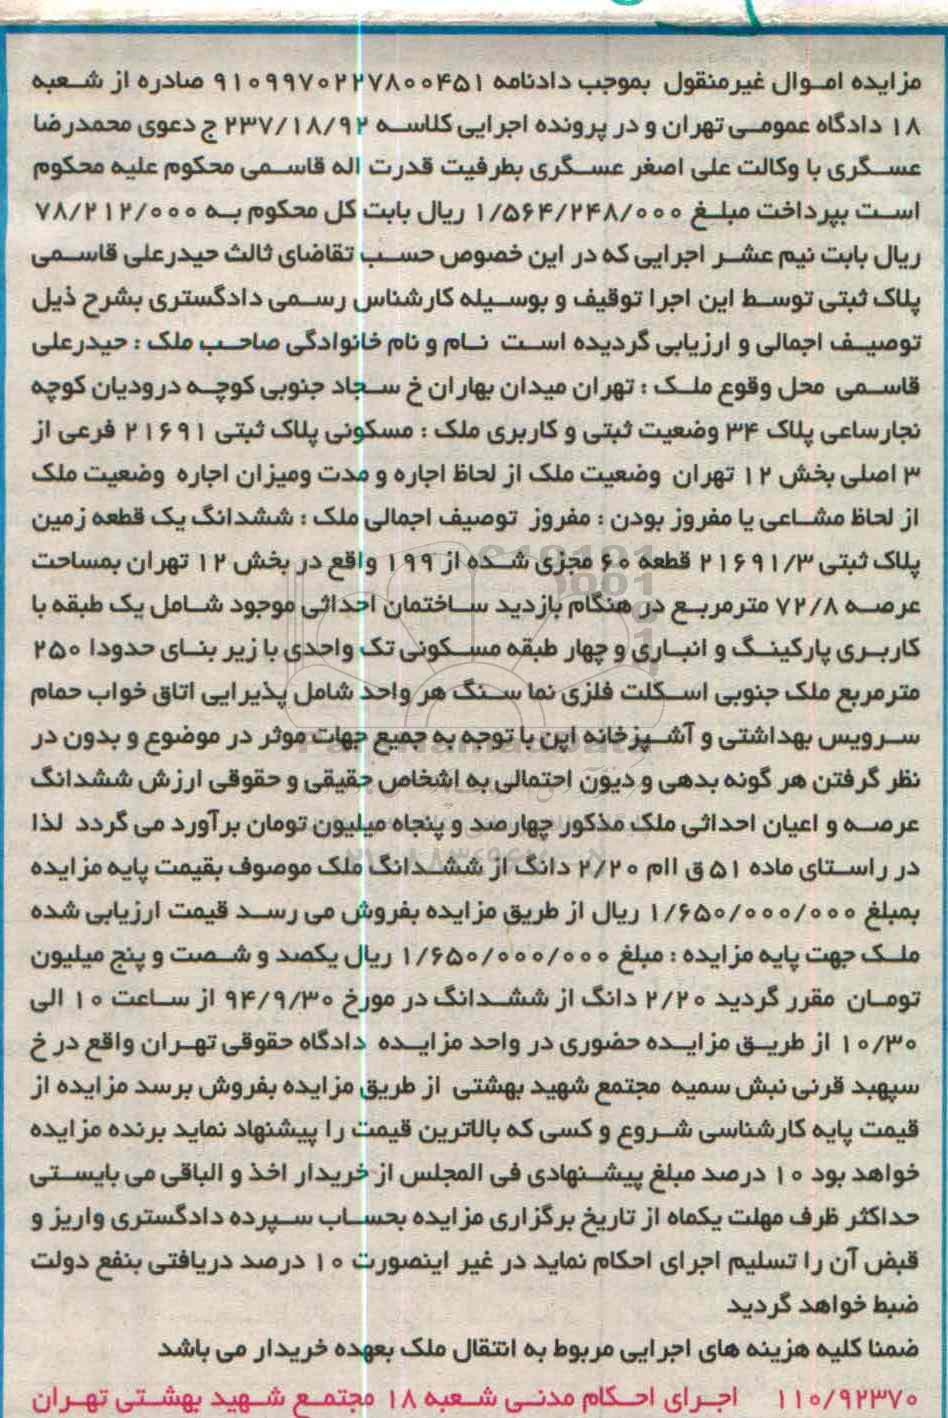 مزایده اموال غیرمنقول بموجب دادنامه ۹۱۰۹۹۷۰۲۲۷۸۰۰۴۵۱ صادره از شعبه
۱۸ دادگاه عمومی تهران و در پرونده اجرایی کلاسه ۲۳۷/۱۸/۹۲ ج دعوی محمدرضا
عسگری با وکالت علی اصغر عسگری بطرفیت قدرت اله قاسمی محکوم علیه محکوم
است بپرداخت مبلغ ۱/۵۶۴/۲۴۸/۰۰۰ ریال بابت کل محکوم به ۷۸/۲۱۲/۰۰۰
ریال بابت نیم عشر اجرایی که در این خصوص حسب تقاضای ثالث حیدرعلی قاسمی
پلاک ثبتی توسط این اجرا توقیف و بوسیله کارشناس رسمی دادگستری بشرح ذیل
توصیف اجمالی و ارزیابی گردیده است نام و نام خانوادگی صاحب ملک : حیدرعلی
قاسمی محل وقوع ملک : تهران میدان بهاران خ سجاد جنوبی کوچه درودیان کوچه
نجارساعی پلاک ۳۴ وضعیت ثبتی و کاربری ملک : مسکونی پلاک ثبتی ۲۱۶۹۱ فرعی از
۳ اصلی بخش ۱۲ تهران وضعیت ملک از لحاظ اجاره و مدت ومیزان اجاره وضعیت ملک
از لحاظ مشاعی یا مفروز بودن : مفروز توصیف اجمالی ملک : ششدانگ یک قطعه زمین
پلاک ثبتی ۲۱۶۹۱/۳ قطعه ۶۰ مجزی شده از ۱۹۹ واقع در بخش ۱۲ تهران بمساحت
عرصه ۷۲/۸ مترمربع در هنگام بازدید ساختمان احداثی موجود شامل یک طبقه با
کاربری پارکینگ و انباری و چهار طبقه مسکونی تک واحدی با زیر بنای حدودا ۲۵۰
مترمربع ملک جنوبی اسکلت فلزی نما سنگ هر واحد شامل پذیرایی اتاق خواب حمام
سرویس بهداشتی و آشپزخانه اپن با توجه به جمیع جهات موثر در موضوع و بدون در
نظر گرفتن هر گونه بدهی و دیون احتمالی به اشخاص حقیقی و حقوقی ارزش ششدانگ
عرصه و اعیان احداثی ملک مذکور چهارصد و پنجاه میلیون تومان برآورد می گردد لذا
در راستای ماده ۵۱ ق اام ۲/۲۰ دانگ از ششدانگ ملک موصوف بقیمت پایه مزایده
بمبلغ ۱/۶۵۰/۰۰۰/۰۰۰ ریال از طریق مزایده بفروش می رسد قیمت ارزیابی شده
ملک جهت پایه مزایده : مبلغ ۱/۶۵۰/۰۰۰/۰۰۰ ریال یکصد و شصت و پنج میلیون
تومان مقرر گردید ۲/۲۰ دانگ از ششدانگ در مورخ ۹۴/۹/۳۰ از ساعت ۱۰ الی
۱۰/۳۰ از طریق مزایده حضوری در واحد مزایده دادگاه حقوقی تهران واقع در خ
سپهبد قرنی نبش سمیه مجتمع شهید بهشتی از طریق مزایده بفروش برسد مزایده از
قیمت پایه کارشناسی شروع و کسی که بالاترین قیمت را پیشنهاد نماید برنده مزایده
خواهد بود ۱۰ درصد مبلغ پیشنهادی فی المجلس از خریدار اخذ و الباقی می بایستی
حداکثر ظرف مهلت یکماه از تاریخ برگزاری مزایده بحساب سپرده دادگستری واریز و
قبض آن را تسلیم اجرای احکام نماید در غیر اینصورت ۱۰ درصد دریافتی بنفع دولت
ضبط خواهد گردید
ضمنا کلیه هزینه های اجرایی مربوط به انتقال ملک بعهده خریدار می باشد
۱۱۰/۹۲۳۷۰ اجرای احکام مدنی شعبه ۱۸ مجتمع شهید بهشتی تهران